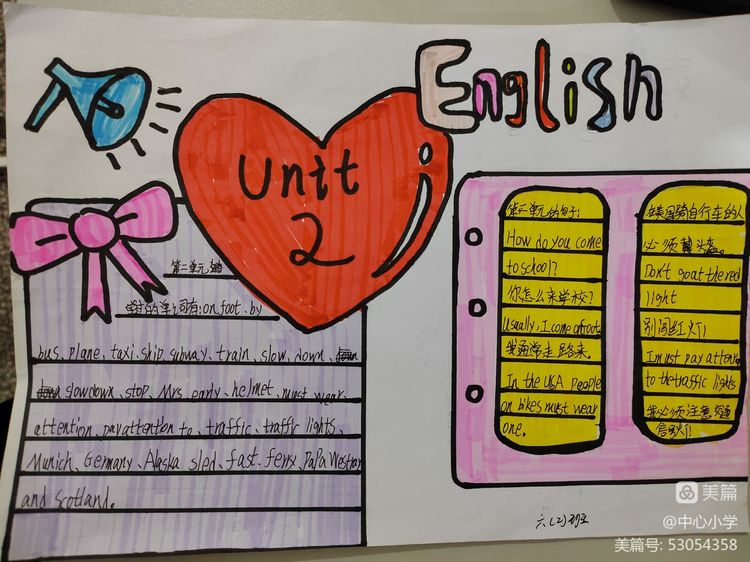 English
Unit
2
第二单元
单词有:on foot、by
bus、plane、taxi、ship、subway、train、slow、down、
slowdown、stop、Mrs、early、helmet、must、wear、
attention、pay attention to、traffic、traffic lights、
Munich、Germany、Alaska sled、fast、ferry、PaPa Westray
and Scotland。
第二单元的句子:
How do you come
to school?
你怎么来学校?
Usually,I come on foot
我通常走路来。
In the USA people
on bikes must wear
one.
在美国骑自行车的人
必须戴头盔。
Don't go at the red
light
别闯红灯!
I must pay attention
to the traffic lights
我必须注意交通
信号灯!
六(2)班
美篇
@中心小学
美篇号: 53054358